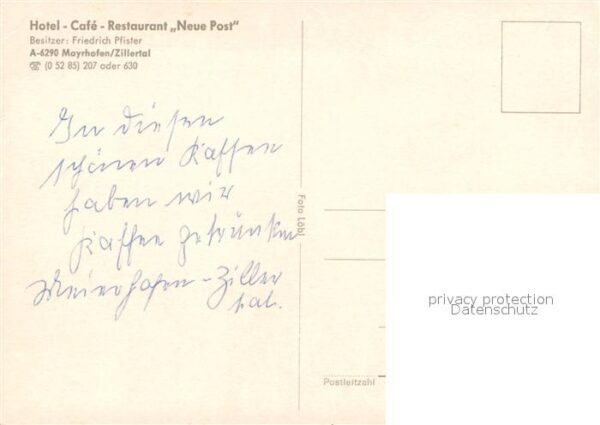 Hotel - Café - Restaurant „Neue Post“
Besitzer: Friedrich Pfister
A-6290 Mayrhofen/Zillertal
☎ (0 52 85) 207 oder 630
In diesen
schönen Kaffee
haben wir
Kaffee getrunken
Meierhofen - Ziller
tal.
Foto Löbl
Postleitzahl
privacy protection
Datenschutz